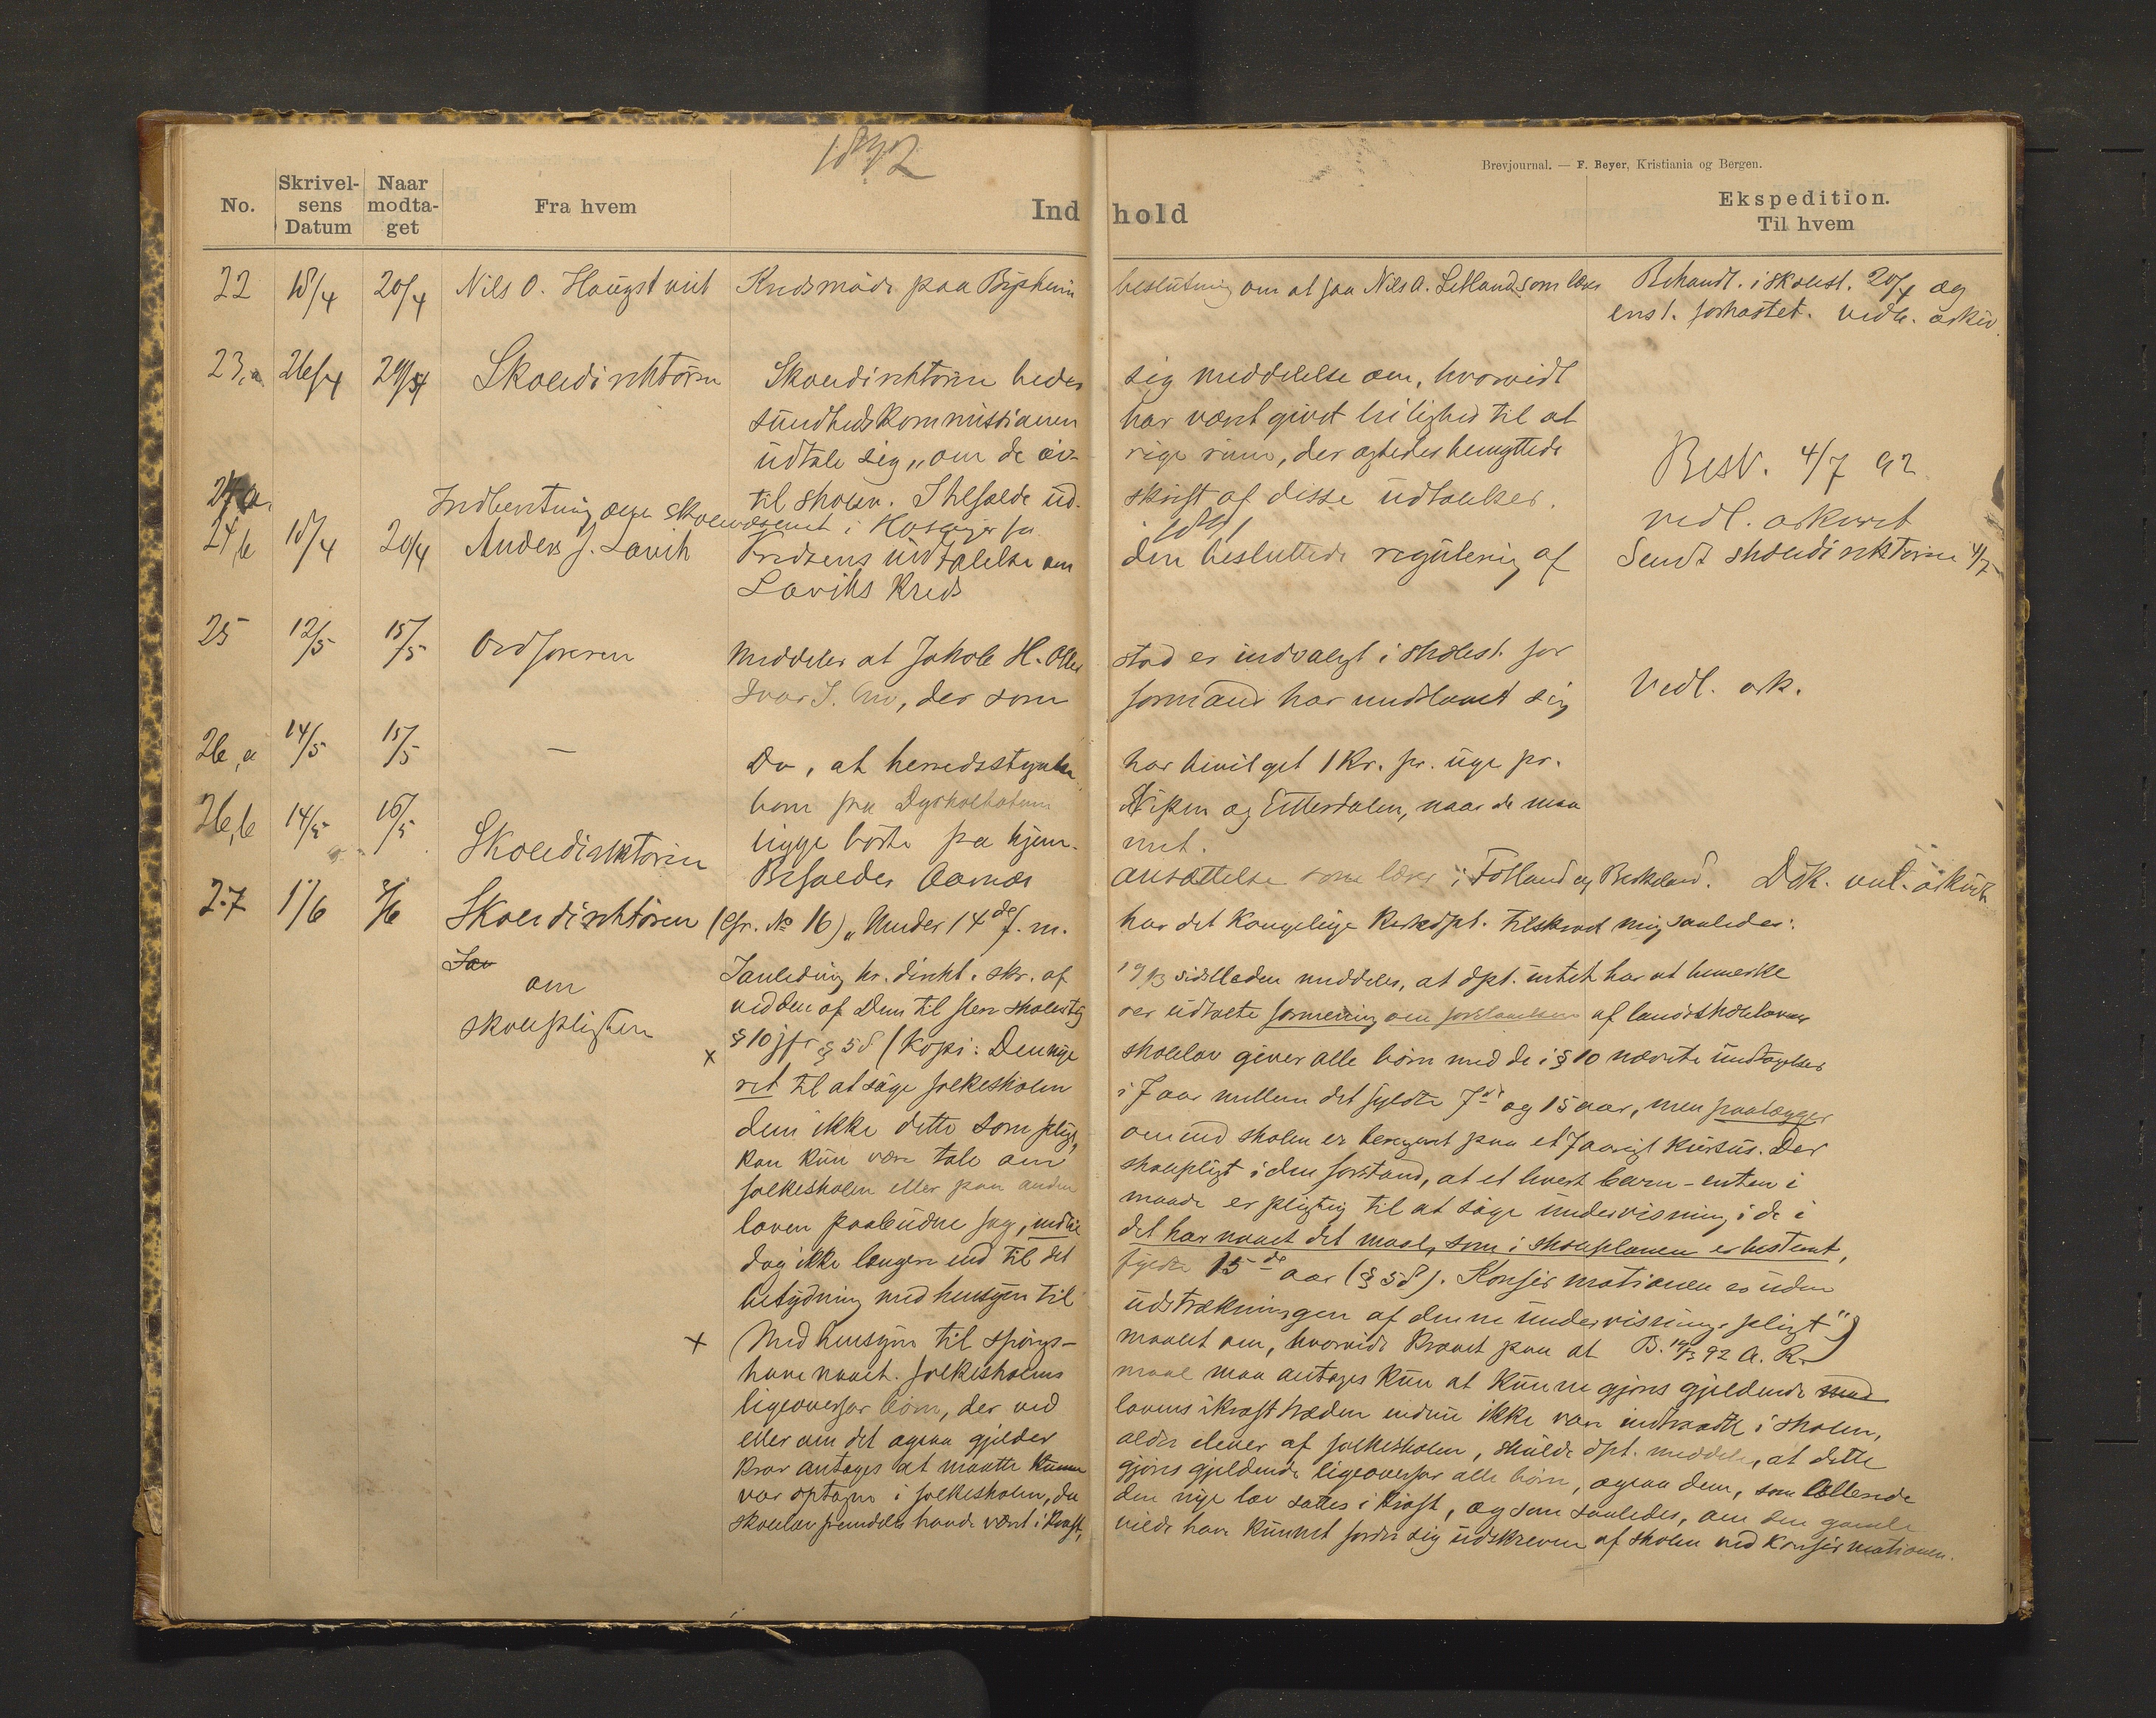 1892
Brevjournal. — F. Beyer, Kristiania og Bergen.
No. Skrivelsens Datum Naar modtaget Fra hvem Indhold Ekspedition. Til hvem
22 18/4 20/4 Nils O. Haugstvect Kredsmøde paa Bysheim beslutning om at faa Nils A. Litland som lærer Behandl. i skolest. 20/4 og
enst. forkastet. vedl. arkiv
23,a 26/4 29/4 Skoledirektøren Skoledirektøren beder sig meddelelse om, hvorvidt
sundhedskommissionen har været givet leilighed til at
udtale sig „om de øv- rige rum, der agtedes benyttede
til skolen. I tilfælde ud- skrift af disse udtalelser. Besv. 4/7 92
vedl. arkivet
24 a. Indberetning om skolevæsenet i Hosanger for 1891
24 b 18/4 20/4 Anders J. Lavik Kredsens udtalelse om den besluttede regulering af Sendt skoledirektøren 4/7
Laviks Kreds
25 12/5 15/5 Ordføreren Meddeler at Jakob H. stad er indvalgt i skolest. for
Ivar J. , der som formand har undslaaet sig Vedl. ark.
26,a 14/5 15/5 — Do, at herredsstyret har bevilget 1 Kr. pr. uge pr.
barn fra og Eitersdalen, naar de maa
ligge borte fra hjem- met.
26,b 14/5 16/5 Skoledirektøren Befaldes ansættelse som lærer i Fotland og Birkeland. Dok. vel. arkivet
27 1/6 3/6 Skoledirektøren (Cfr. No 16) „Under 14de f. m. har det Kongelige Kirkedpt. tilskrevet mig saaledes:
om
skolepligten
I anledning hr. direkt. skr. af 19/3 sidstleden meddeles, at dpt. intet har at bemerke
ved den af Dem til skolestyr er udtalte formening om forstaaelsen af landsskolelovens
x § 10 jfr § 58 (Kopi: Den nye skolelov giver alle børn med de i § 10 nævnte undtagelser
ret til at søge folkeskolen i 7 aar mellem det fyldte 7de og 15 aar, men paalægger
dem ikke dette som pligt, om end skolen er beregnet paa et 7aarigt kursus. Der
kan kun være tale om skolepligt i den forstand, at et hvert barn – enten i
folkeskolen eller paa anden maade er pligtig til at søge undervisning i de i
loven paabudne fag, indtil det har naaet det maal, som i skoleplanen er bestemt,
dog ikke længere end til det fyldte 15de aar (§ 58). Konfirmationen er uden
betydning med hensyn til udstrækningen af denne undervisningspligt")
x Med hensyn til spørgs- maalet om, hvorvidt kravet paa at B. 14/5 92 A. R.
have naaet folkeskolens maal maa antages kun at kunne gjøres gjeldende
ligeoverfor børn, der ved lovens ikrafttræden endnu ikke var indtraadt i skolen,
eller om det ogsaa gjelder ældre elever af folkeskolen, skulde dpt. meddele, at dette
krav antages at maatte kunne gjøres gjeldende ligeoverfor alle børn, ogsaa dem, som allerede
var optagne i folkeskolen, da den nye lov sattes i kraft, og som saaledes, om den gamle
skolelov fremdeles havde været i kraft, vilde have kunnet fordre sig udskreven af skolen ved konfirmationen.